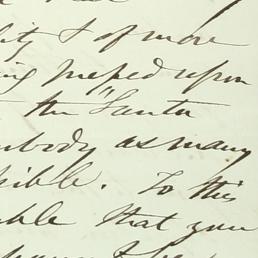 & of more
ing pressed upon
the "Santa
embody as many
sible. To this
able that you